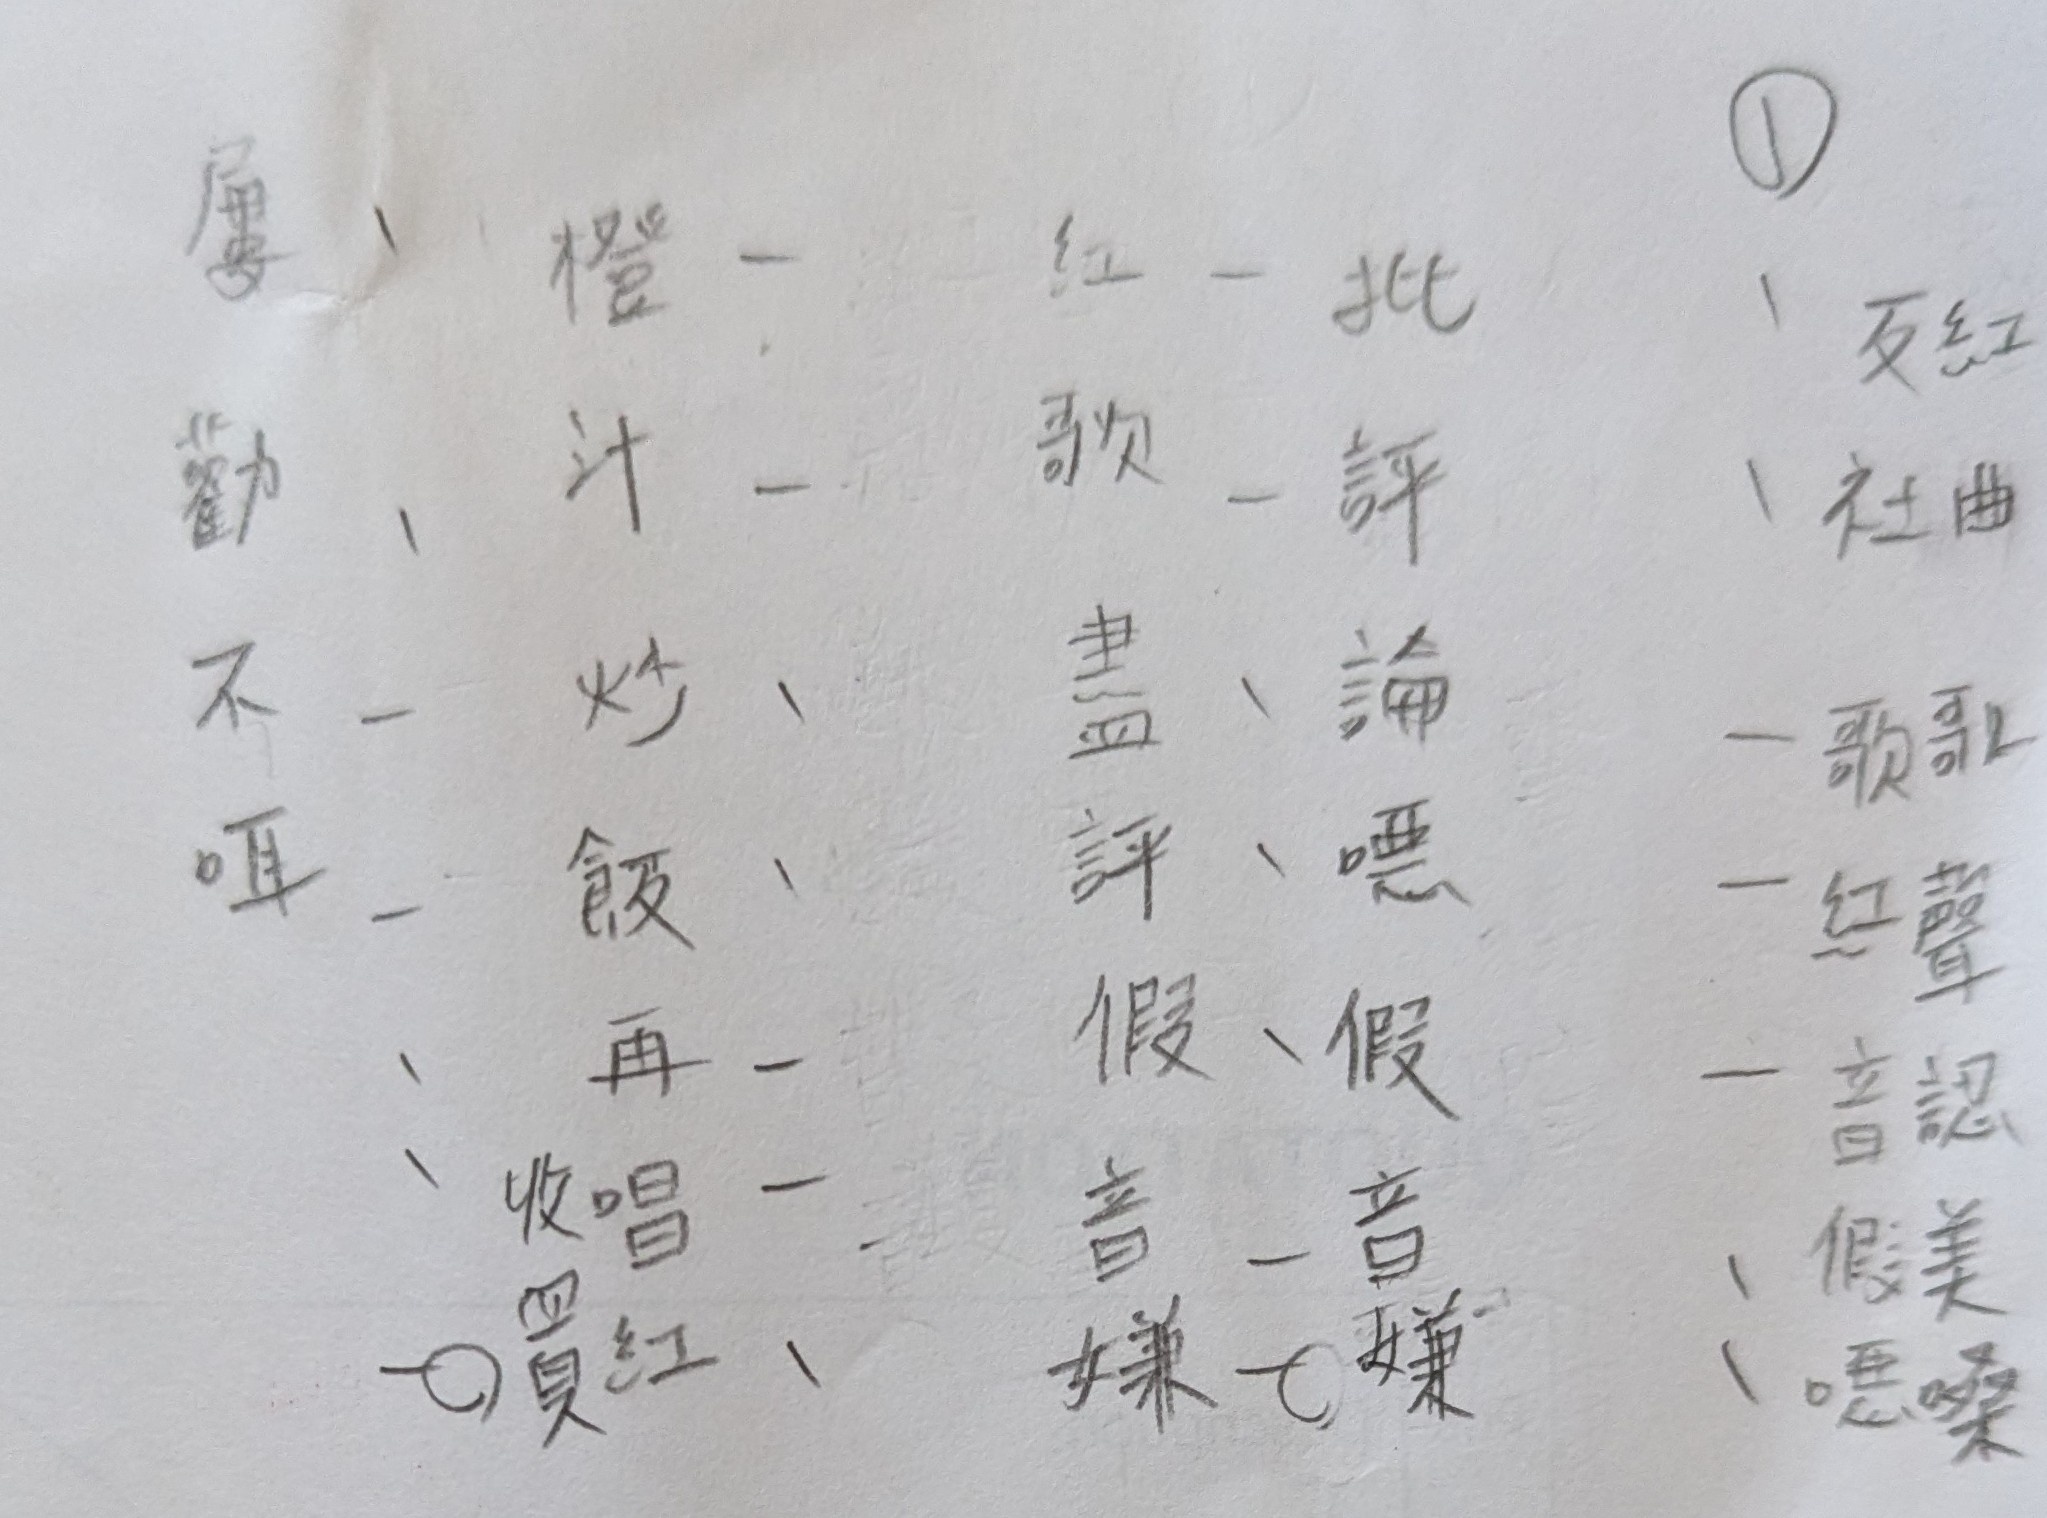 ①
紅曲歌聲認美嗓
反社歌紅音假噁
丶丶一一一丶丶
批評論噁假音嫌
一一丶丶丶一一
紅歌盡評假音嫌
一一丶丶一一丶
橙汁炒飯再唱紅
收買
丶丶一一丶丶一
屢勸不咡